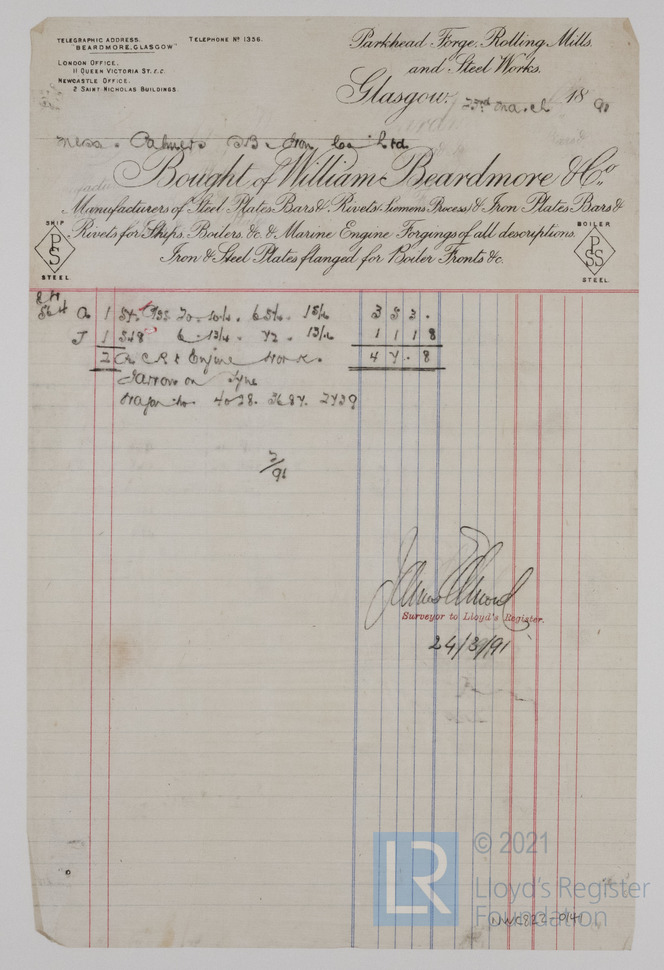 TELEGRAPHIC ADDRESS. TELEPHONE Nº 1356.
"BEARDMORE, GLASGOW"
LONDON OFFICE.
11 QUEEN VICTORIA ST. E.C.
NEWCASTLE OFFICE.
2 SAINT NICHOLAS BUILDINGS.
Parkhead Forge, Rolling Mills.
and Steel Works.
Glasgow, 23rd March 1891
Messrs Palmers SB & Iron Co Ltd
Bought of William Beardmore & Co.
Manufacturers of Steel Plates Bars & Rivets (Siemens Process) & Iron Plates Bars &
Rivets for Ships, Boilers, &c & Marine Engine Forgings of all descriptions.
Iron & Steel Plates flanged for Boiler Fronts &c.
SHIP
PS
STEEL
BOILER
PSS
STEEL.
A 1 3 5 2 .
J 1 548 1 1 1 8
2 Engine Works. 4 7 . 8
Jarrow on Tyne
Wagon No. 4038. 3687. 2739
3/91
Surveyor to Lloyd's Register.
24/3/91
LR
© 2021
Lloyd's Register
Foundation